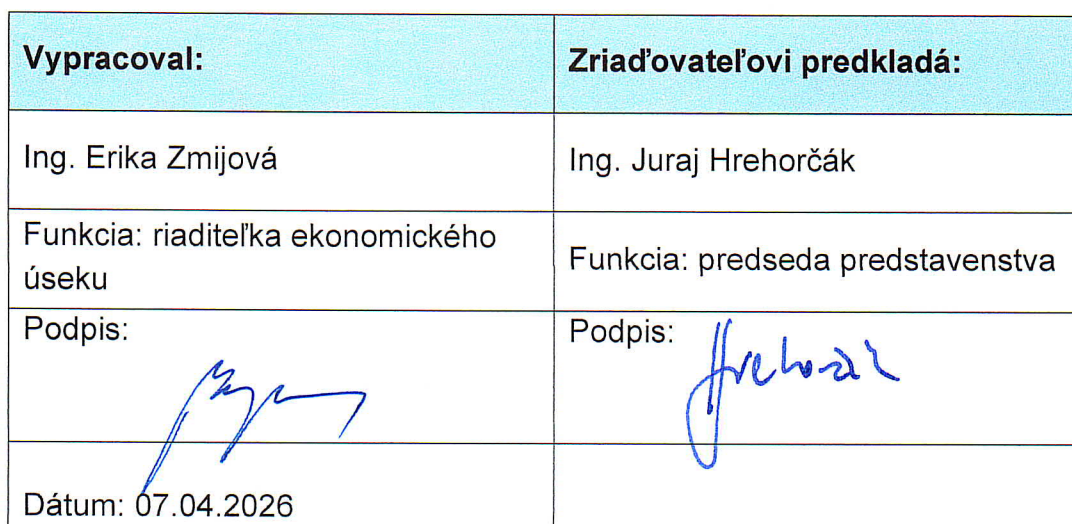 Vypracoval:
Zriaďovateľovi predkladá:
Ing. Erika Zmijová
Ing. Juraj Hrehorčák
Funkcia: riaditeľka ekonomického
úseku
Funkcia: predseda predstavenstva
Podpis:
Podpis:
Dátum: 07.04.2026